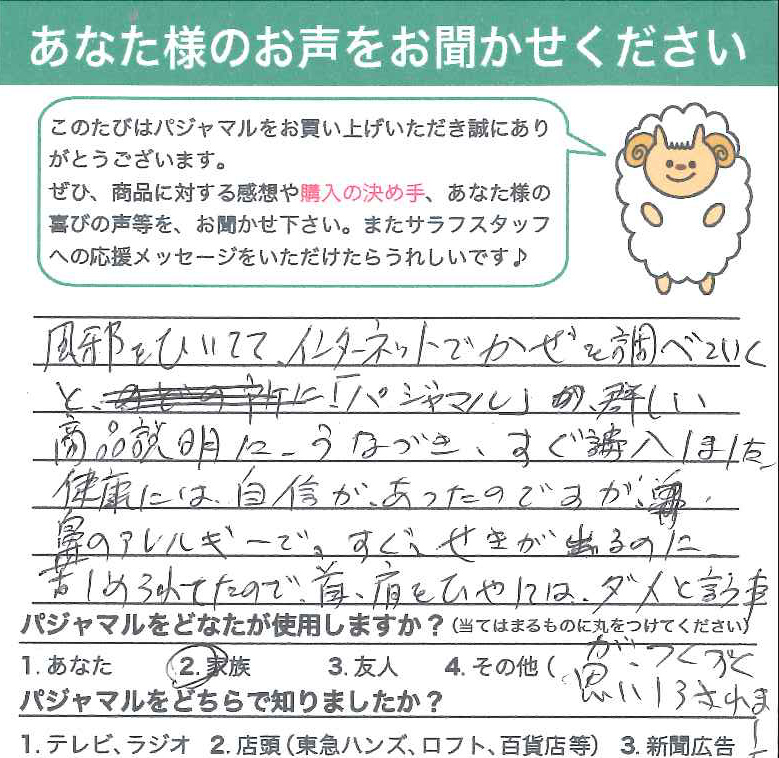 あなた様のお声をお聞かせください
このたびはパジャマルをお買い上げいただき誠にあり
がとうございます。
ぜひ、商品に対する感想や購入の決め手、あなた様の
喜びの声等を、お聞かせ下さい。またサラフスタッフ
への応援メッセージをいただけたらうれしいです♪
風邪をひいてて、インターネットでかぜを調べていく
と、「パジャマル」が、群しい
商品説明に、うなづき、すぐ購入しました
健康には、自信が、あったのですが、
鼻のアレルギーで、すぐ、せきが出るのに
苦しめられてたので、首、肩をひやしては、ダメと言う事
が、つくづく
思いしらされま
した
パジャマルをどなたが使用しますか？（当てはまるものに丸をつけてください）
1. あなた 2. 家族 3. 友人 4. その他（
パジャマルをどちらで知りましたか？
1. テレビ、ラジオ 2. 店頭（東急ハンズ、ロフト、百貨店等） 3. 新聞広告